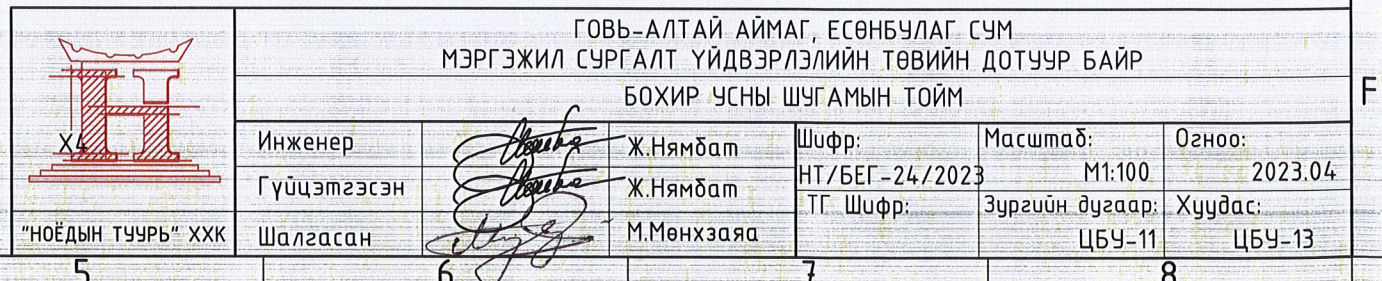 ГОВЬ-АЛТАЙ АЙМАГ, ЕСӨНБУЛАГ СУМ
МЭРГЭЖИЛ СУРГАЛТ ҮЙДВЭРЛЭЛИЙН ТӨВИЙН ДОТУУР БАЙР
БОХИР УСНЫ ШУГАМЫН ТОЙМ
F
Х4
"НОЁДЫН ТУУРЬ" ХХК
Инженер
Ж.Нямбат
Гүйцэтгэсэн
Ж.Нямбат
Шалгасан
М.Мөнхзаяа
Шифр:
НТ/БЕГ-24/2023
ТГ Шифр:
Масштаб:
М1:100
Огноо:
2023.04
Зургийн дугаар:
ЦБУ-11
Хуудас:
ЦБУ-13
5
6
7
8